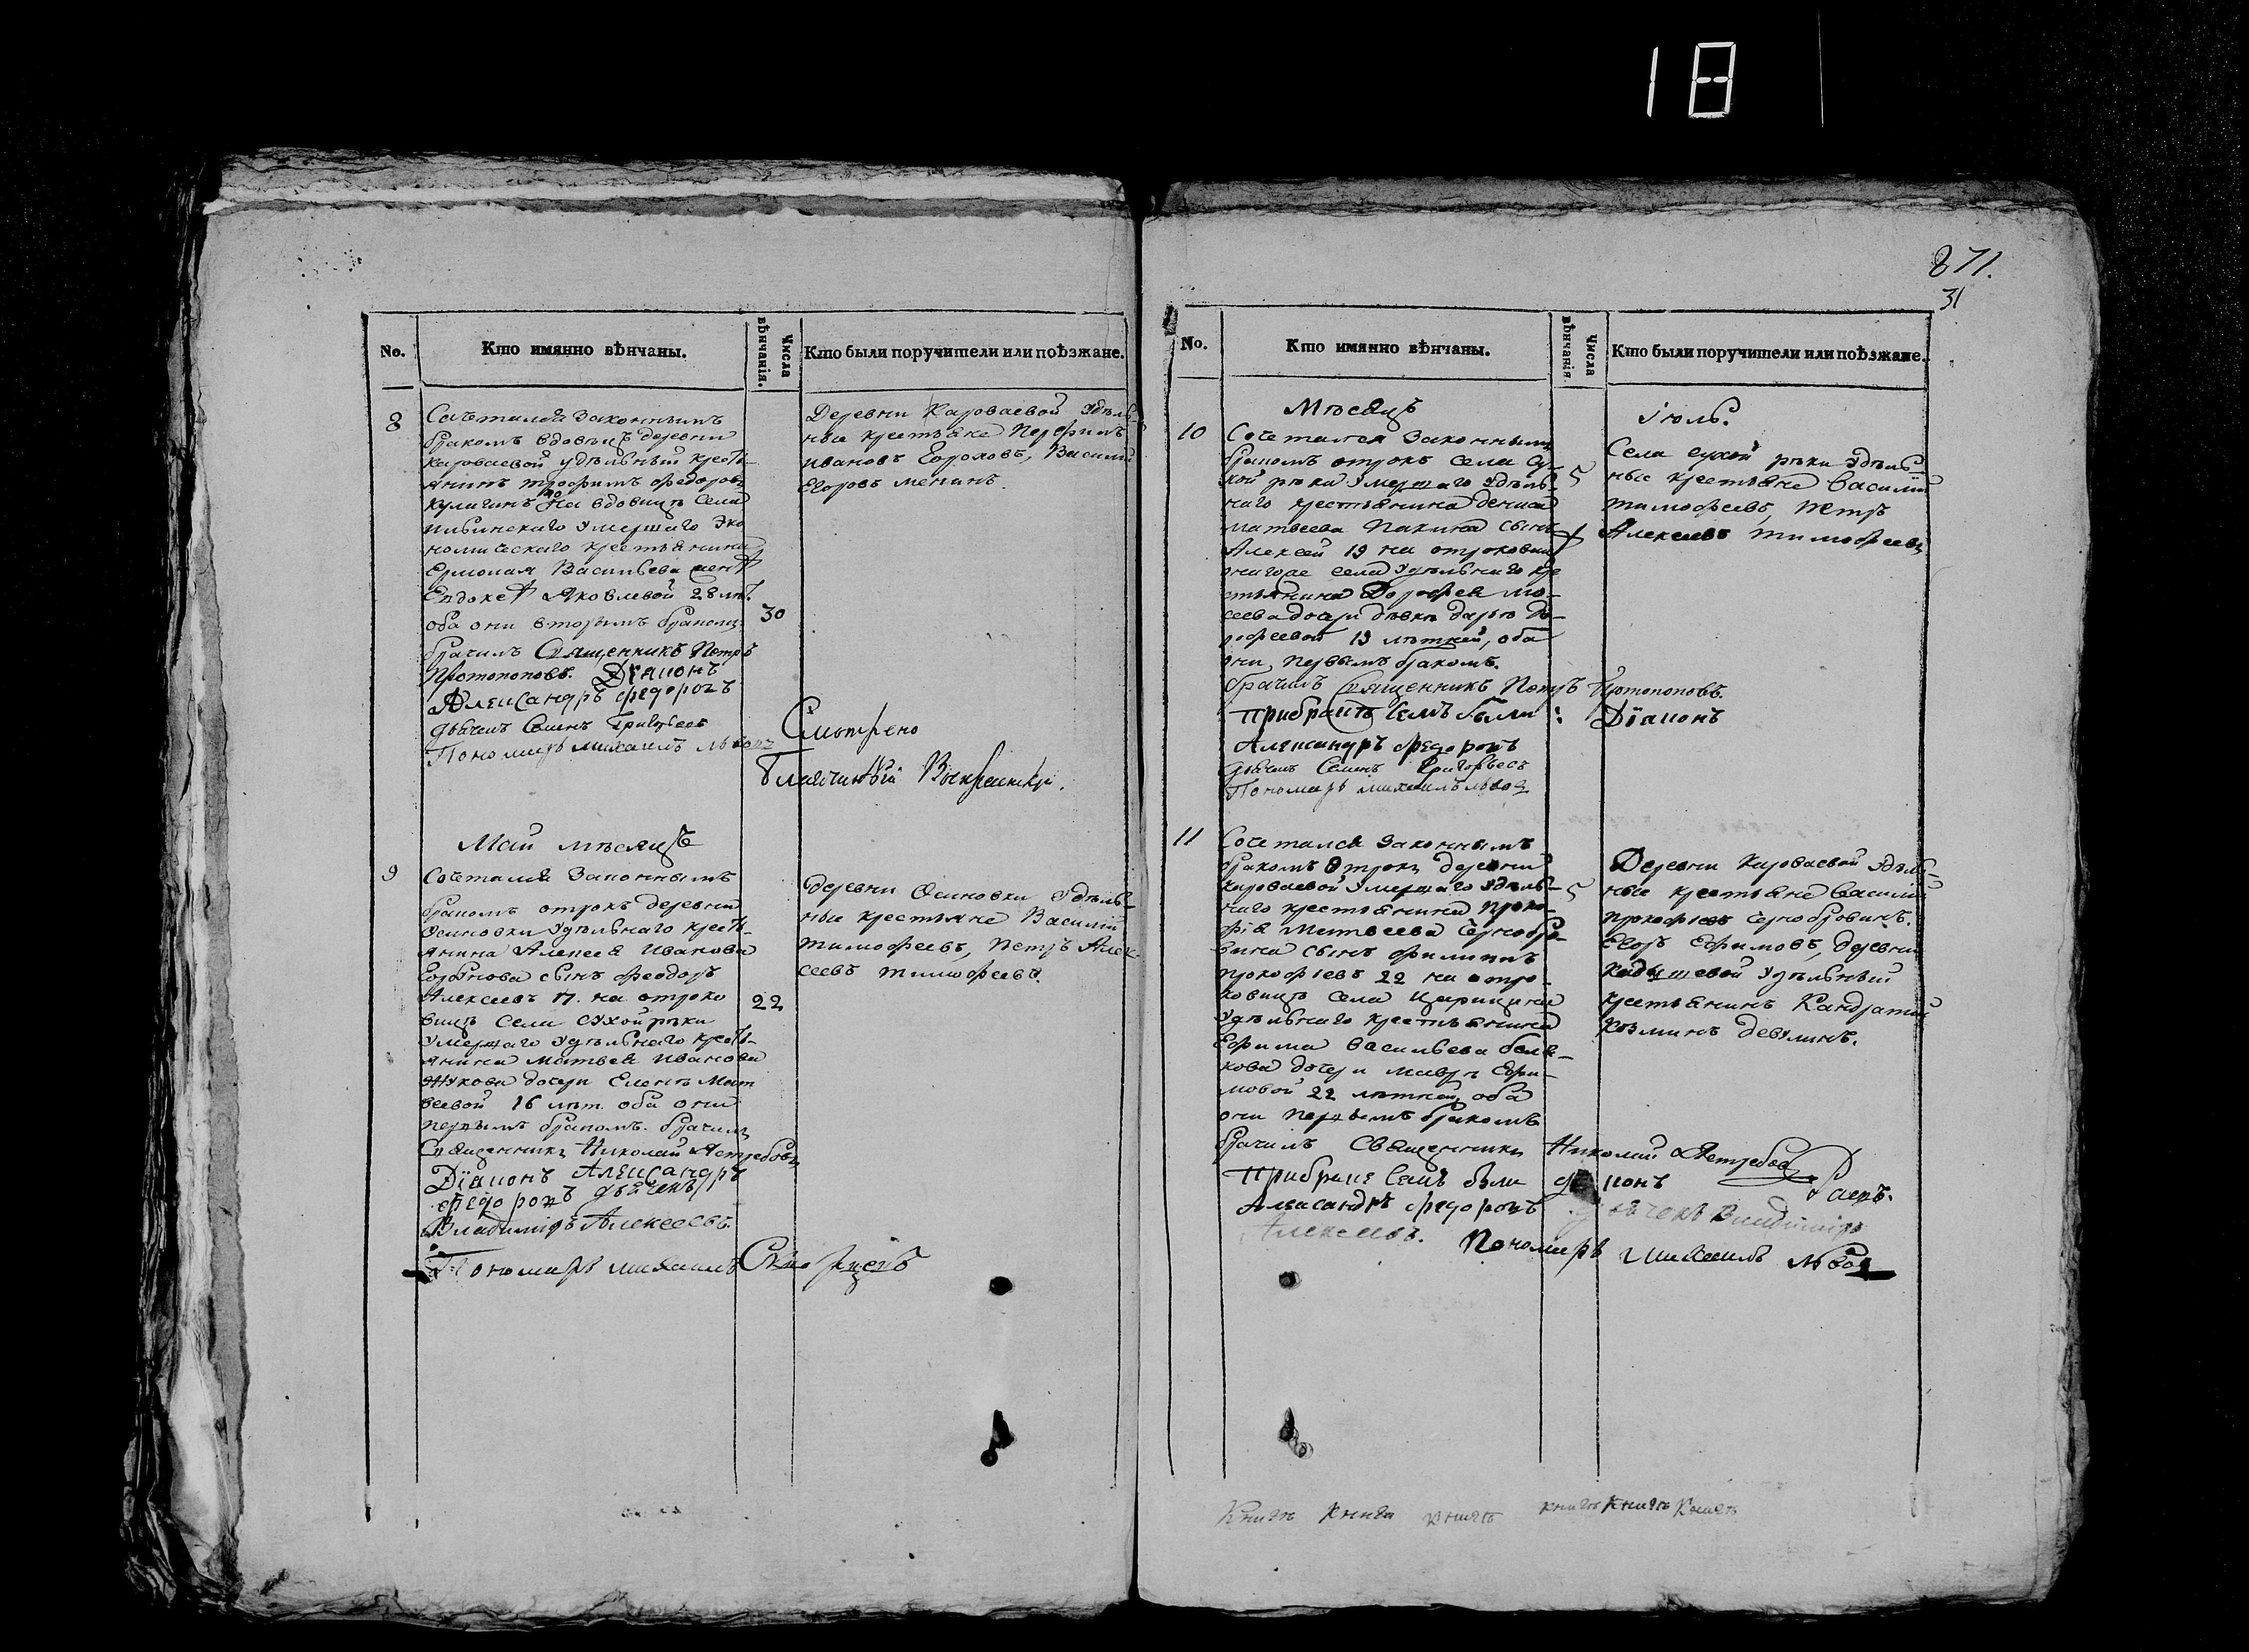 18
871.
31
No.
Кто имянно вѣнчаны.
Числа вѣнчанія.
Кто были поручители или поѣзжане.
8
Сочетался законнымъ
бракомъ вдовецъ деревни
Короваевой удѣльный кресть-
янинъ Трофимъ Федоровъ
Кулигинъ на вдовицѣ села
Ильинскаго умершаго эко
номическаго крестьянина
Ермолая Васильева
Яковлевой 28 лѣт.
оба они вторымъ бракомъ
30
брачилъ Священникъ Петръ
Протопоповъ. Дїаконъ
Александръ Федоровъ
дьячекъ Семенъ Григорьевъ
Пономарь Михаилъ Львовъ
Деревни Короваевой удѣль
ные крестьяне
Ивановъ Гороховъ, Василій
Егоровъ Менинъ.
Смотрено
Благочинный
Май мѣсяцъ
9
Сочетался законнымъ
бракомъ отрокъ деревни
Осиновки удѣльнаго кресть-
янина Алексея Иванова
сынъ Феодоръ
Алексеевъ 17. на отроко
22
вицѣ села Сухой рѣки
умершаго удѣльнаго кресть-
янина Матвея Иванова
Жукова дочери Еленѣ Мат
веевой 16 лѣт. оба они
первымъ бракомъ. брачилъ
Священникъ Николай Ястребовъ
Дїаконъ Александръ
Федоровъ дьячекъ
Владимиръ Алексеевъ.
Пономарь Михаилъ
деревни Осиновки удѣль-
ные крестьяне Василій
Тимофеевъ, Петръ Алек
сеевъ Тимофеевъ.
No.
Кто имянно вѣнчаны.
Числа вѣнчанія.
Кто были поручители или поѣзжане.
Мѣсяцъ
Июль.
10
Сочетался законнымъ
бракомъ отрокъ села Су-
хой рѣки умершаго удѣль-
5
наго крестьянина Дениса
Матвеева Пакина сынъ
Алексей 19 на отроковицѣ
онагоже села удѣльнаго кре
стьянина Дорофея Мо-
сеева дочери дѣвкѣ Дарье До-
рофеевой 19 лѣтней, оба
они первымъ бракомъ.
брачилъ Священникъ Петръ Протопоповъ.
При бракѣ семъ были: Дїаконъ
Александръ Федоровъ
дьячекъ Семенъ Григорьевъ
Пономарь Михаилъ Львовъ
Села Сухой рѣки удѣль-
ные крестьяне Василій
Тимофеевъ, Петръ
Алексеевъ Тимофеевъ
11
Сочетался законнымъ
бракомъ отрокъ деревни
Короваевой умершаго удѣль-
5
наго крестьянина Проко-
фія Матвеева Чернобро-
вина сынъ Филиппъ
Прокофьевъ 22 на отро-
ковицѣ села Царицына
удѣльнаго крестьянина
Ефима Васильева Беля-
кова дочери Мавре Ефи-
мовой 22 лѣтней, оба
они первымъ бракомъ
брачилъ Священникъ Николай Ястребовъ
При бракѣ семъ были дїаконъ
Александръ Федоровъ дьячекъ Владимиръ
Алексеевъ. Пономарь Михаилъ Львовъ
Деревни Короваевой удѣль-
ные крестьяне Василій
Прокофьевъ Чернобровинъ.
Егоръ Ефимовъ, деревни
Кадышевой удѣльный
крестьянинъ Кандратій
Козминъ Девулинъ.
Книгъ Книга Книгъ Книгъ Книгъ Книгъ